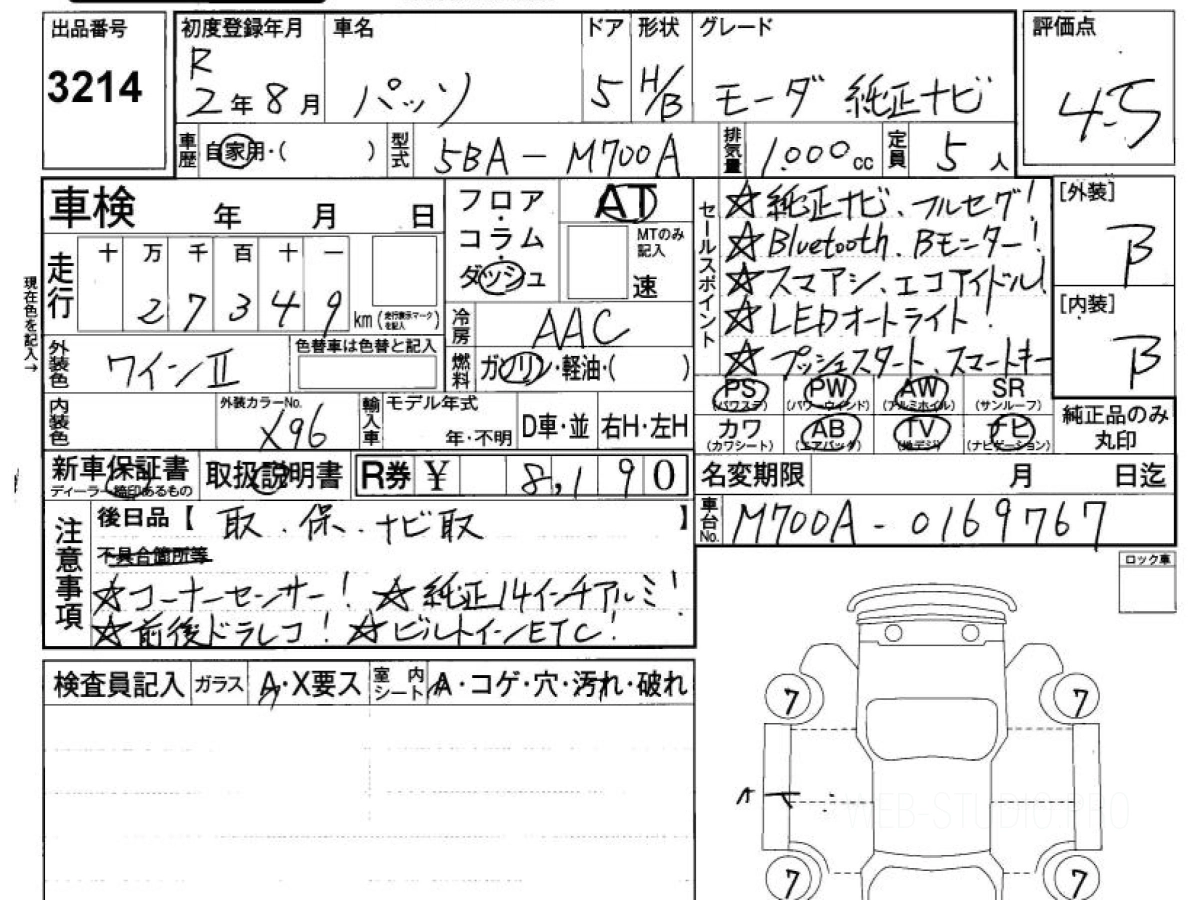 出品番号
3214
初度登録年月
R
2年8月
車名
パッソ
ドア
5
形状
H/B
グレード
モーダ 純正ナビ
評価点
4.5
車歴
自家用・( )
型式
5BA-M700A
排気量
1.000cc
定員
5人
車検 年 月 日
走行
十 万 千 百 十 一
2 7 3 4 9
km(走行表示マークを記入)
現在色を記入→
外装色
ワインⅡ
色替車は色替と記入
内装色
外装カラーNo.
X96
輸入車
モデル年式
年・不明
D車・並
右H・左H
フロア・コラム
ダッシュ
AT
MTのみ記入
速
冷房
AAC
燃料
ガソリン・軽油・( )
セールスポイント
☆純正ナビ、フルセグ!
☆Bluetooth、Bモニター!
☆スマアシ、エコアイドル!
☆LEDオートライト!
☆プッシュスタート、スマートキー
[外装]
B
[内装]
B
PS
(パワステ)
PW
(パワーウィンド)
AW
(アルミホイル)
SR
(サンルーフ)
カワ
(カワシート)
AB
(エアバッグ)
TV
(地デジ)
ナビ
(ナビゲーション)
純正品のみ
丸印
新車保証書
ディーラー捺印あるもの
取扱説明書
R券 ¥ 8,190
名変期限 月 日迄
車台No.
M700A-0169767
注意事項
後日品【 取・保・ナビ取 】
不具合箇所等
☆コーナーセンサー! ☆純正14インチアルミ!
☆前後ドラレコ! ☆ビルトインETC!
ロック車
検査員記入
ガラス
A・X要ス
室内シート
A・コゲ・穴・汚れ・破れ
7
7
7
7
WEB-STUDIO.PRO